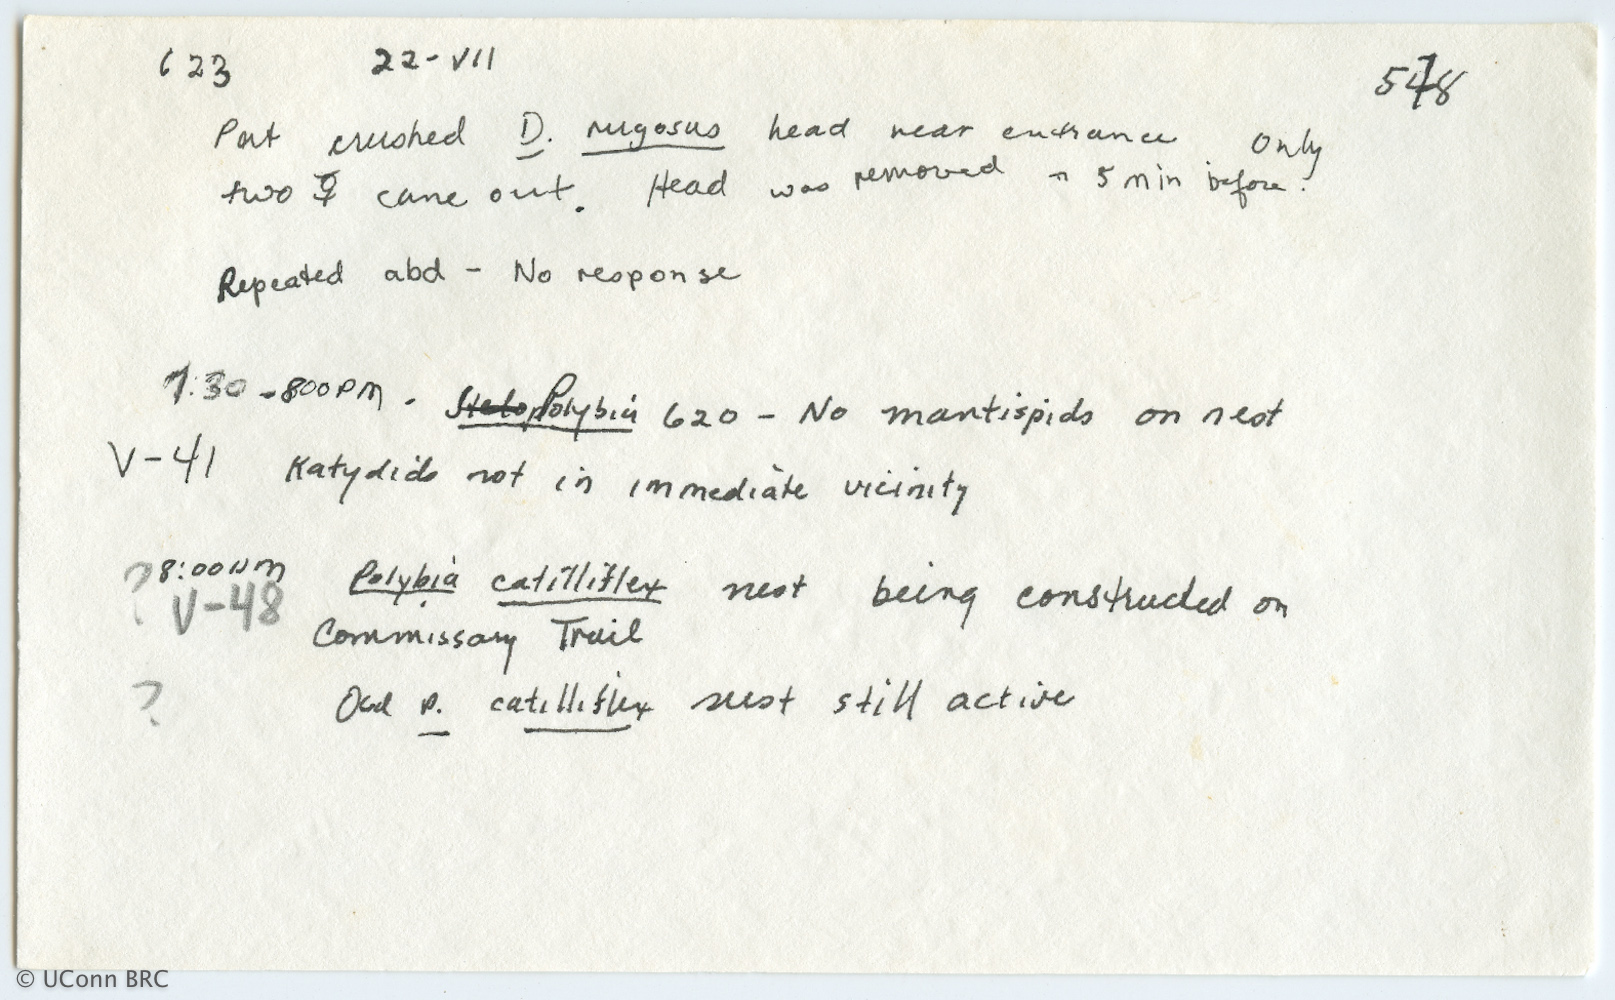 623 22-VII 578
Put crushed D. rugosus head near entrance only
two ☿ came out. Head was removed ~ 5 min before.
Repeated abd - No response
7:30 - 800 PM. Polybia 620 - No mantispids on nest
V-41 Katydids not in immediate vicinity
? 8:00 PM Polybia catillifex nest being constructed on
V-48
Commissary Trail
? Old P. catillifex nest still active
© UConn BRC